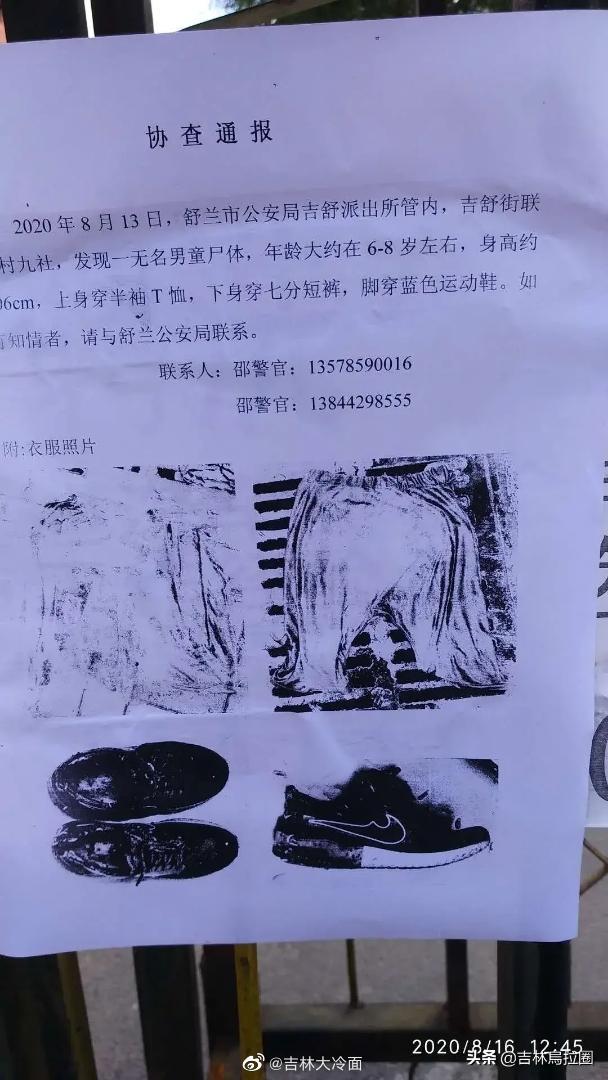 协查通报
2020年8月13日，舒兰市公安局吉舒派出所管内，吉舒街联
村九社，发现一无名男童尸体，年龄大约在6-8岁左右，身高约
06cm，上身穿半袖T恤，下身穿七分短裤，脚穿蓝色运动鞋。如
有知情者，请与舒兰公安局联系。
联系人：邵警官：13578590016
邵警官：13844298555
附:衣服照片
2020/8/16 12:45
@吉林大冷面
头条 @吉林烏拉圈